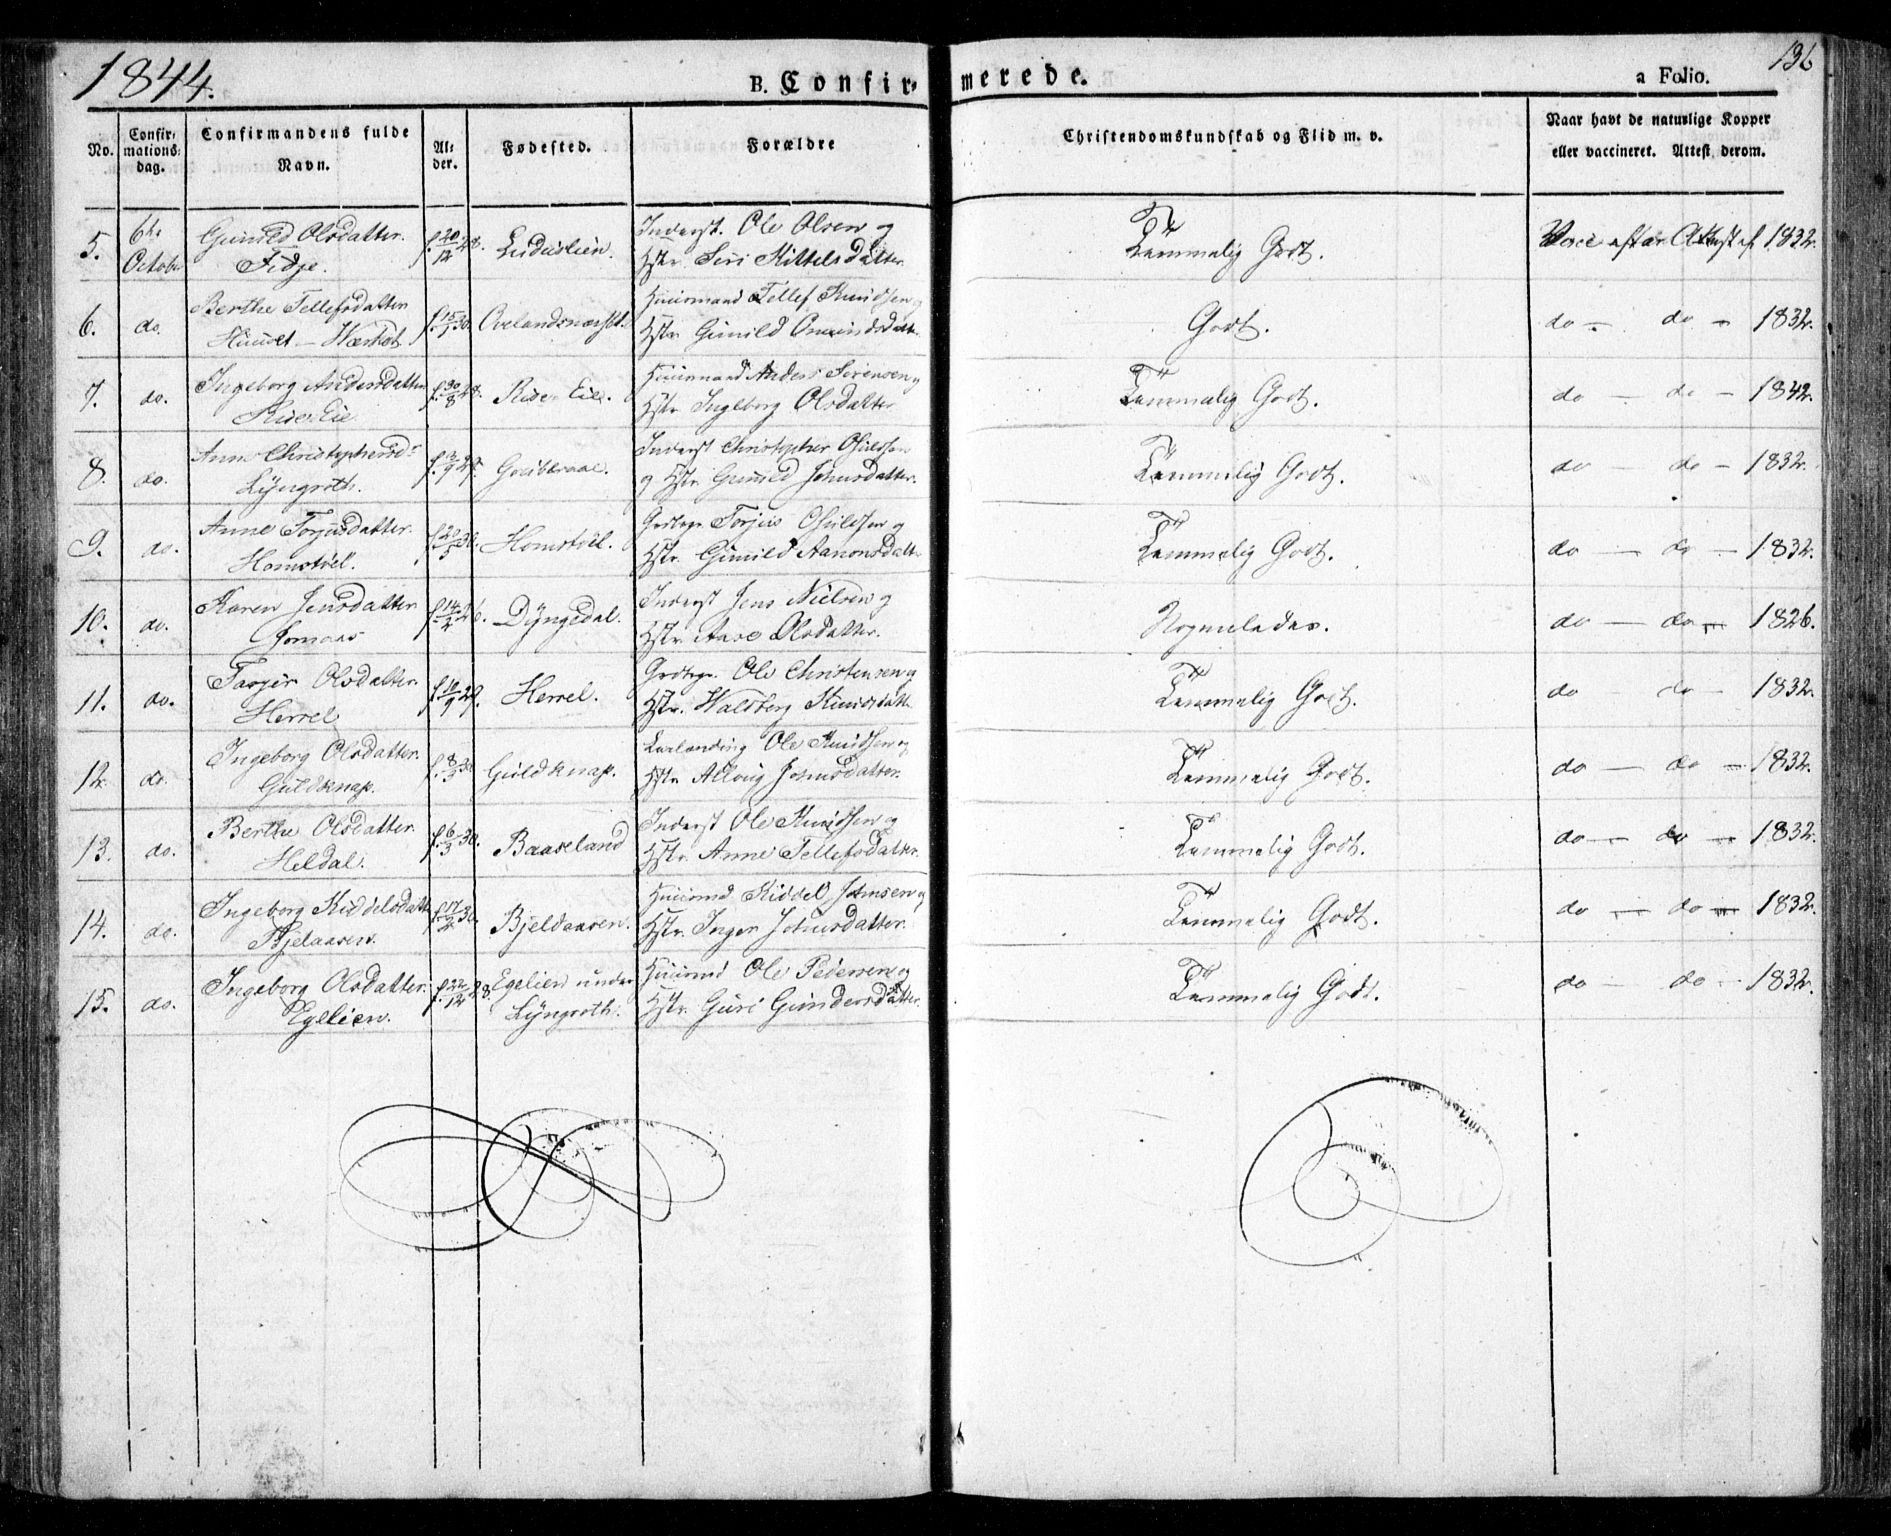 1844.
B. Confirmerede.
a Folio.
136
No.
Confirmations-dag.
Confirmandens fulde Navn.
Alder.
Fødested.
Forældre
Christendomskundskab og Flid m. v.
Naar havt de naturlige Kopper eller vaccineret. Attest derom.
5. 6te October Gunild Olsdatter. Fidje. f. 20/12 28. Inderst. Ole Olsen og Hstr. Siri Kittelsdatter. Temmelig Godt. Vacc. efter Attest af 1832.
6. do. Berthe Tellefsdatter f. 15/1 30. Huusmand Tellef Knudsen og Hstr. Gunild Godt. do — do — 1832.
7. do. Ingeborg Andersdatter Rise Eie f. 30/8 28. Rise Eie. Huusmand Anders Sørensen og Hstr. Ingeborg Olsdatter Temmelig Godt. do — do — 1842.
8. do. Anne Christophersd: Lyngroth. Inderst Christopher Osuldsen og Hstr. Gunild Johnsdatter. Temmelig Godt. do — do — 1832.
9. do. Anne Torjusdatter. Homstvel. f. 20/5 30. Homstvel. Torjus Osuldsen og Hstr. Gunild Aanonsdatt. Temmelig Godt. do — do — 1832.
10. do. Karen Jensdatter f. 14/2 26. Dyngedal. Inderst Jens Nielsen og Hstr. Aase Olsdatter. do — do — 1826.
11. do. Tarjer Olsdatter. Herrel f. 10/9 29. Herrel. Ole Christensen og Hstr. Walsberg Knudsdatt. Temmelig Godt. do — do — 1832.
12. do. Ingeborg Olsdatter. Guldknap. f. 8/3 30 Guldknap. Ole Knudsen og Hstr. Johnsdatter. Temmelig Godt. do — do — 1832.
13. do. Berthe Olsdatter. Heldal. f. 6/3 30. Baaseland Inderst Ole Knudsen og Hstr. Anne Tellefsdatter. Temmelig Godt. do — do — 1832.
14. do. Ingeborg Kiddelsdatt. f. 17/2 30. Bjeldaasen. Huusmd Kiddel Johnsen og Hstr. Inger Johnsdatter. Temmelig Godt. do — do — 1832.
15. do. Ingeborg Olsdatter. Egelien. f. 22/12 28. Egelien under Lyngroth. Huusmd Ole Pedersen og Hstr. Guri Gundersdatter. Temmelig Godt. do — do — 1832.